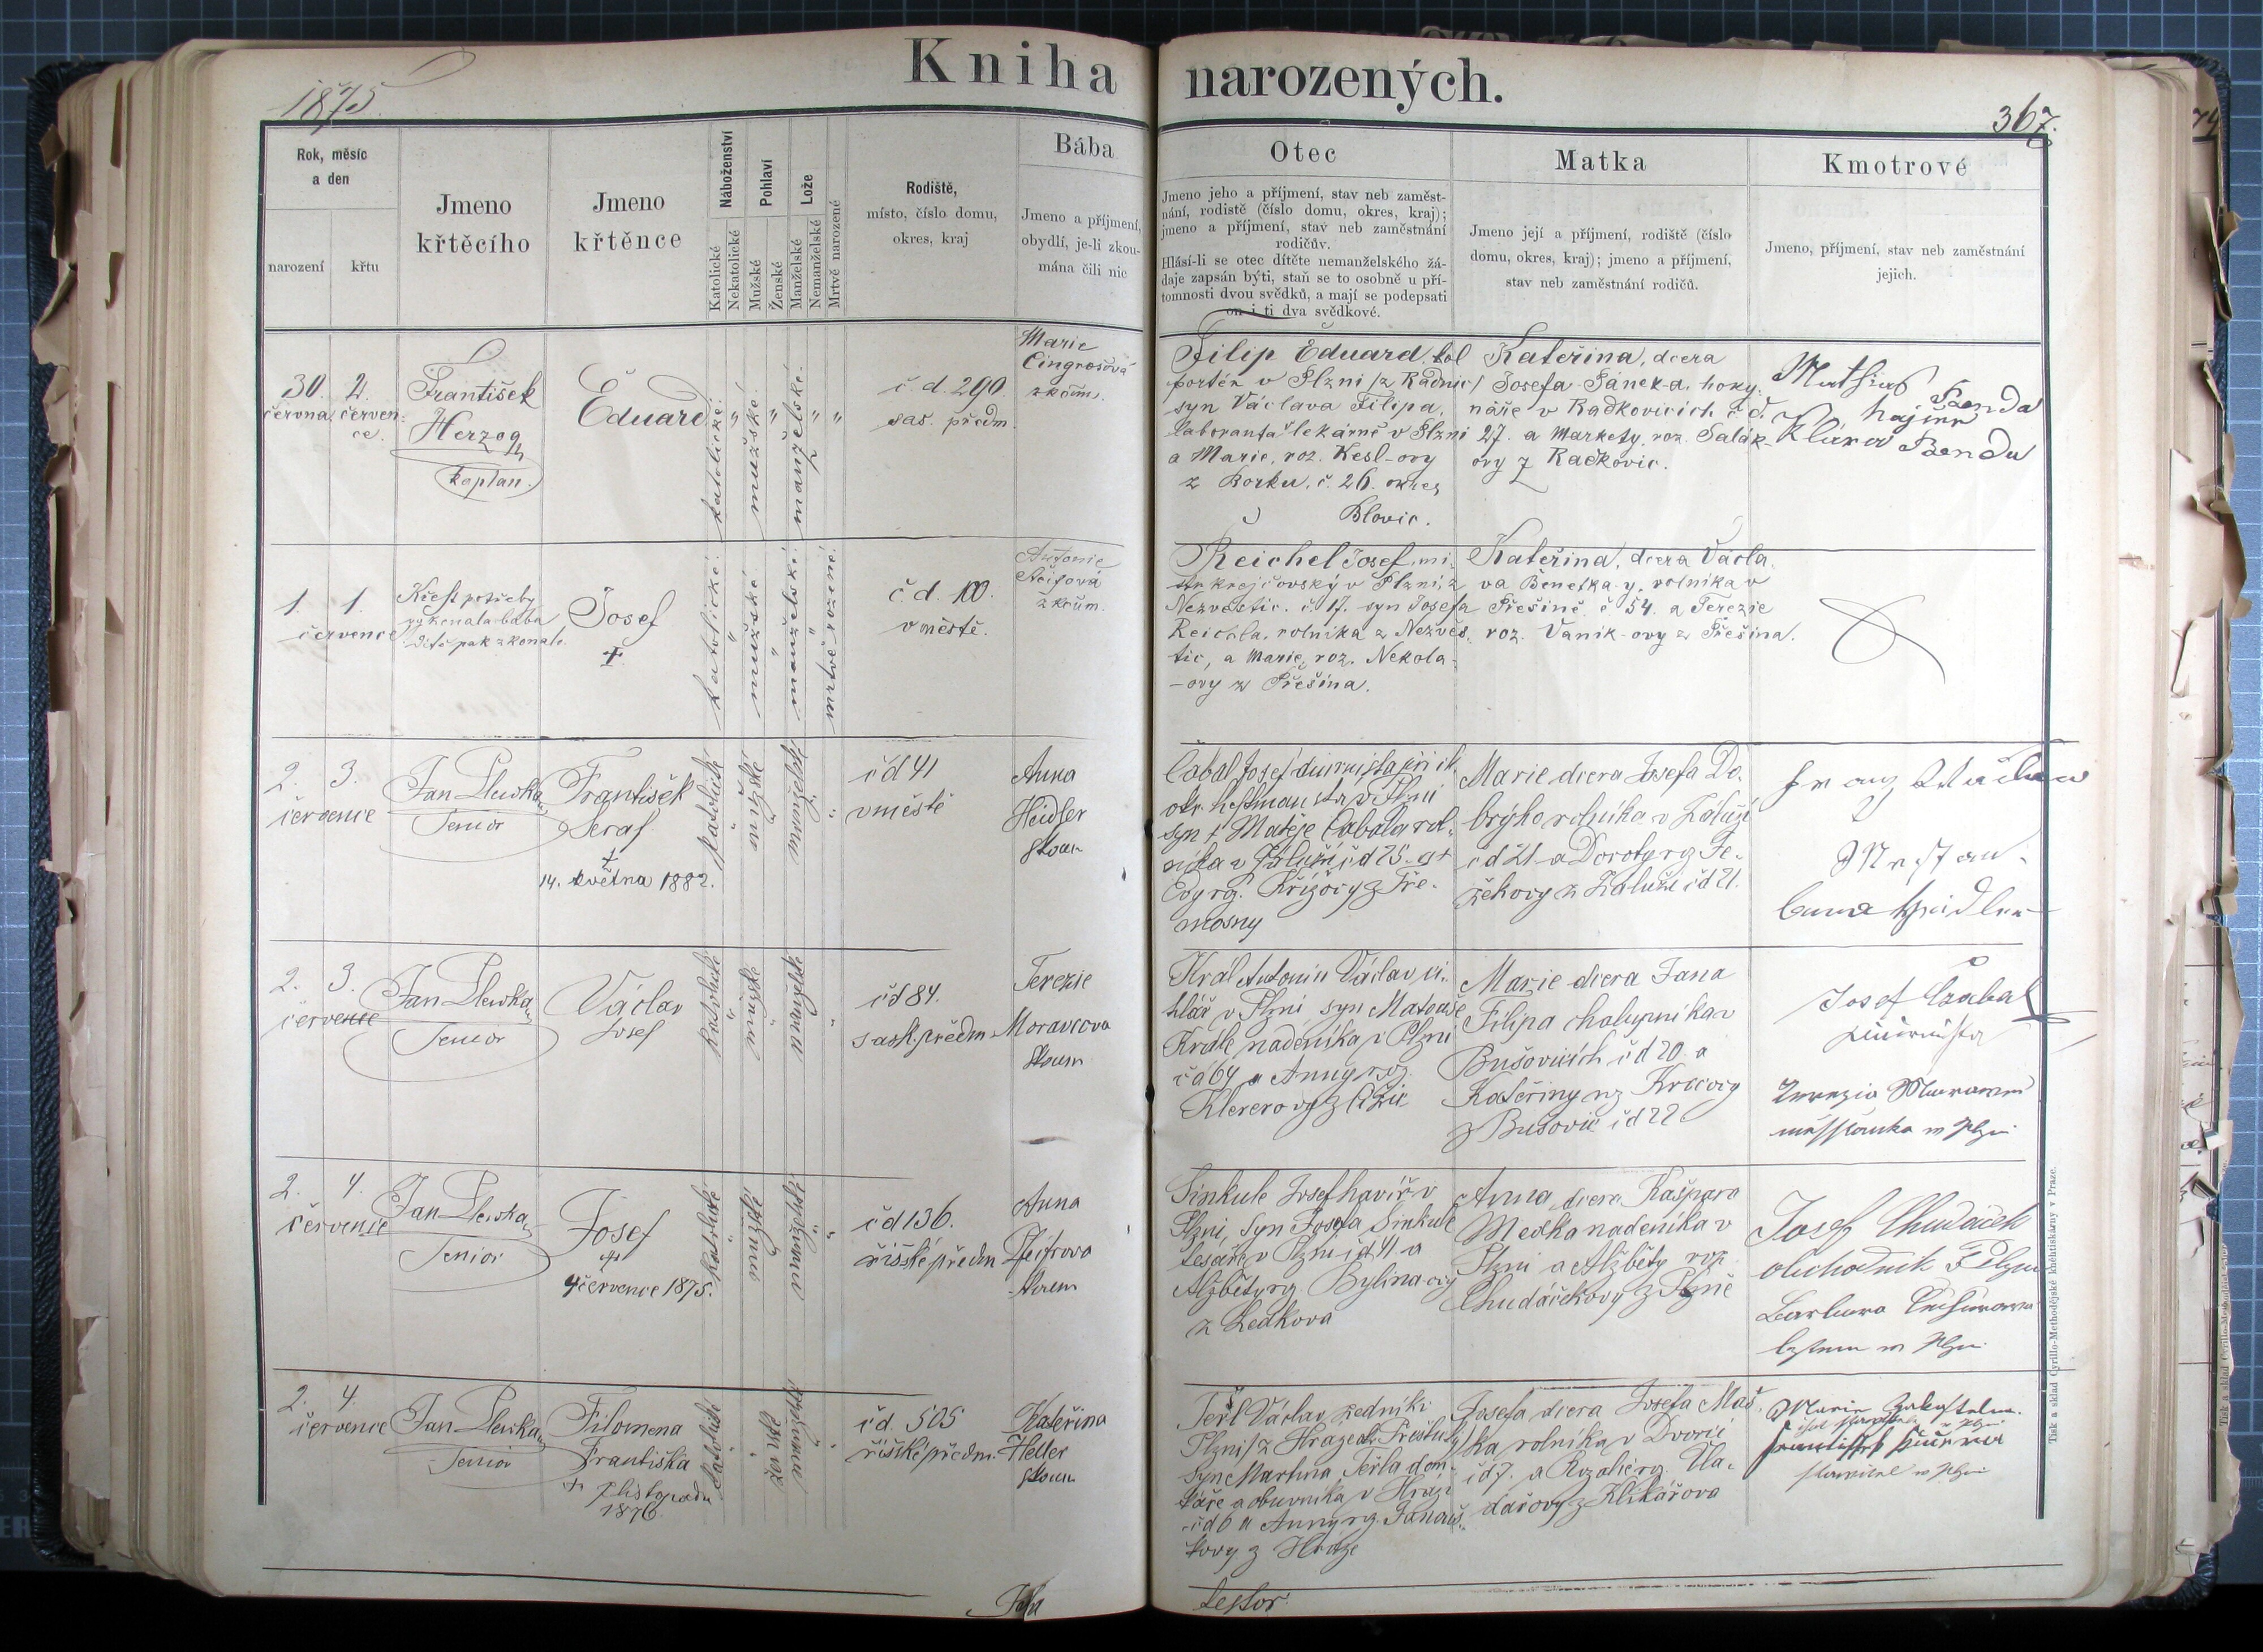 Kniha narozených.
1875.
367.
Rok, měsíc
a den
narození
křtu
Jmeno
křtěcího
Jmeno
křtěnce
Náboženství
Katolické
Nekatolické
Pohlaví
Mužské
Ženské
Lože
Manželské
Nemanželské
Mrtvě narozené
Rodiště,
místo, číslo domu,
okres, kraj
Bába
Jmeno a příjmení,
obydlí, je-li zkou-
mána čili nic
Otec
Jmeno jeho a příjmení, stav neb zaměst-
nání, rodistě (číslo domu, okres, kraj);
jmeno a příjmení, stav neb zaměstnání
rodičův.
Hlásí-li se otec dítěte nemanželského žá-
daje zapsán býti, staň se to osobně u pří-
tomnosti dvou svědků, a mají se podepsati
on i ti dva svědkové.
Matka
Jmeno její a příjmení, rodiště (číslo
domu, okres, kraj); jmeno a příjmení,
stav neb zaměstnání rodičů.
Kmotrové
Jmeno, příjmení, stav neb zaměstnání
jejich.
30. 2.
června červen-
ce.
František
Herzog
kaplan.
Eduard
katolické.
mužské.
manželské.
č. d. 290.
sas. předm.
Marie
Cingrošová
zkoum.
Filip Eduard, kol
portér v Plzni /z Radnic/
syn Václava Filipa,
laboranta v lekárně v Plzni
a Marie, roz. Kesl-ovy
z Borku, č. 26. okres
Blovic.
Kateřina, dcera
Josefa Pánek-a,
náře v Radkovicích č. d.
27. a Markety, roz. Salák-
ovy z Radkovic.
Mathias Benda
hajný
Klára Benda
1. 1.
července
Křest potřeby
vykonala bába
Dítě pak zkonalo.
Josef
+
katolické.
mužské.
manželské.
mrtvě rozené.
č. d. 100.
v městě.
Antonie
zkoum.
Reichel Josef, mi-
str krejčovský v Plzni, z
Nezvěstic. č. 17. syn Josefa
Reichla, rolníka z Nezvěs-
tic, a Marie, roz. Nekola-
-ovy z Přešína.
Kateřina, dcera Václa-
va Benetka-y, rolníka v
Přešíně č 54. a Terezie
roz. Vaník-ovy z Přešína.
2. 3.
července
Jan Plewka
Senior
František
Seraf
+
14. května 1882.
katolické
mužské
manželské
č d 41
v městě
Anna
Heidler
zkoum
Čabal Josef diurnista při ck.
okr. hejtmanství v Plzni
syn + Matěje Čabala rol-
níka v Záluží č d 25. a +
Evy rz. Křížovy z Tře-
mosny
Marie dcera Josefa Do-
brýho rolníka v Záluží
č d 21 a Doroty rz Fe-
z Záluží č d 21.
Franz
Anna Heidler
2. 3.
července
Jan Plewka
Senior
Václav
Josef
katolické
mužské
manželské
č d 84.
sask. předm.
Terezie
Moravcova
zkoum
Král Antonín Václav ci-
hlář v Plzni, syn Matouše
Krále nadeníka v Plzni
č d 64 a Anny roz.
Marie dcera Jana
Filipa chalupníka v
Bušovicích č d 20 a
Kateřiny rz
z Bušovic č d 22
Josef Czabal
diurnista
Terezia
2. 4.
července
Jan Plewka
Senior
Josef
+
4 července 1875.
katolické
mužské
manželské
č d 136.
říšské předm
Anna
Pfeifrova
zkoum
Sinkule Josef havíř v
Plzni, syn Josefa Sinkule
tesaře v Plzni č d 41 a
Alžběty rz. Bylina-ovy
z Ledkova
Anna, dcera Kašpara
Medka nadeníka v
Plzni a Alžběty roz
Chudáčkovy z Plzně
Josef Chudáček
obchodník v Plzni
Barbora
2. 4.
července
Jan Plewka
Senior
Filomena
Františka
+ 7 listopadu
1876.
katolické
ženské
manželské
č d. 505
říšské předm.
Kateřina
Heller
zkoum
Terl Václav zedník v
Plzni /z
syn Martina Terla dom-
káře a obuvníka v Hrázi
č d 6 a Anny rz. Janouš-
kovy z Hráze
Josefa dcera Josefa Maš-
ka rolníka v Dvorci
č d 7. a Rozalie rz. Vla-
dařovy z Klikářova
Marie
František
Tisk a sklad Cyrillo-Methodějské knihtiskárny v Praze.